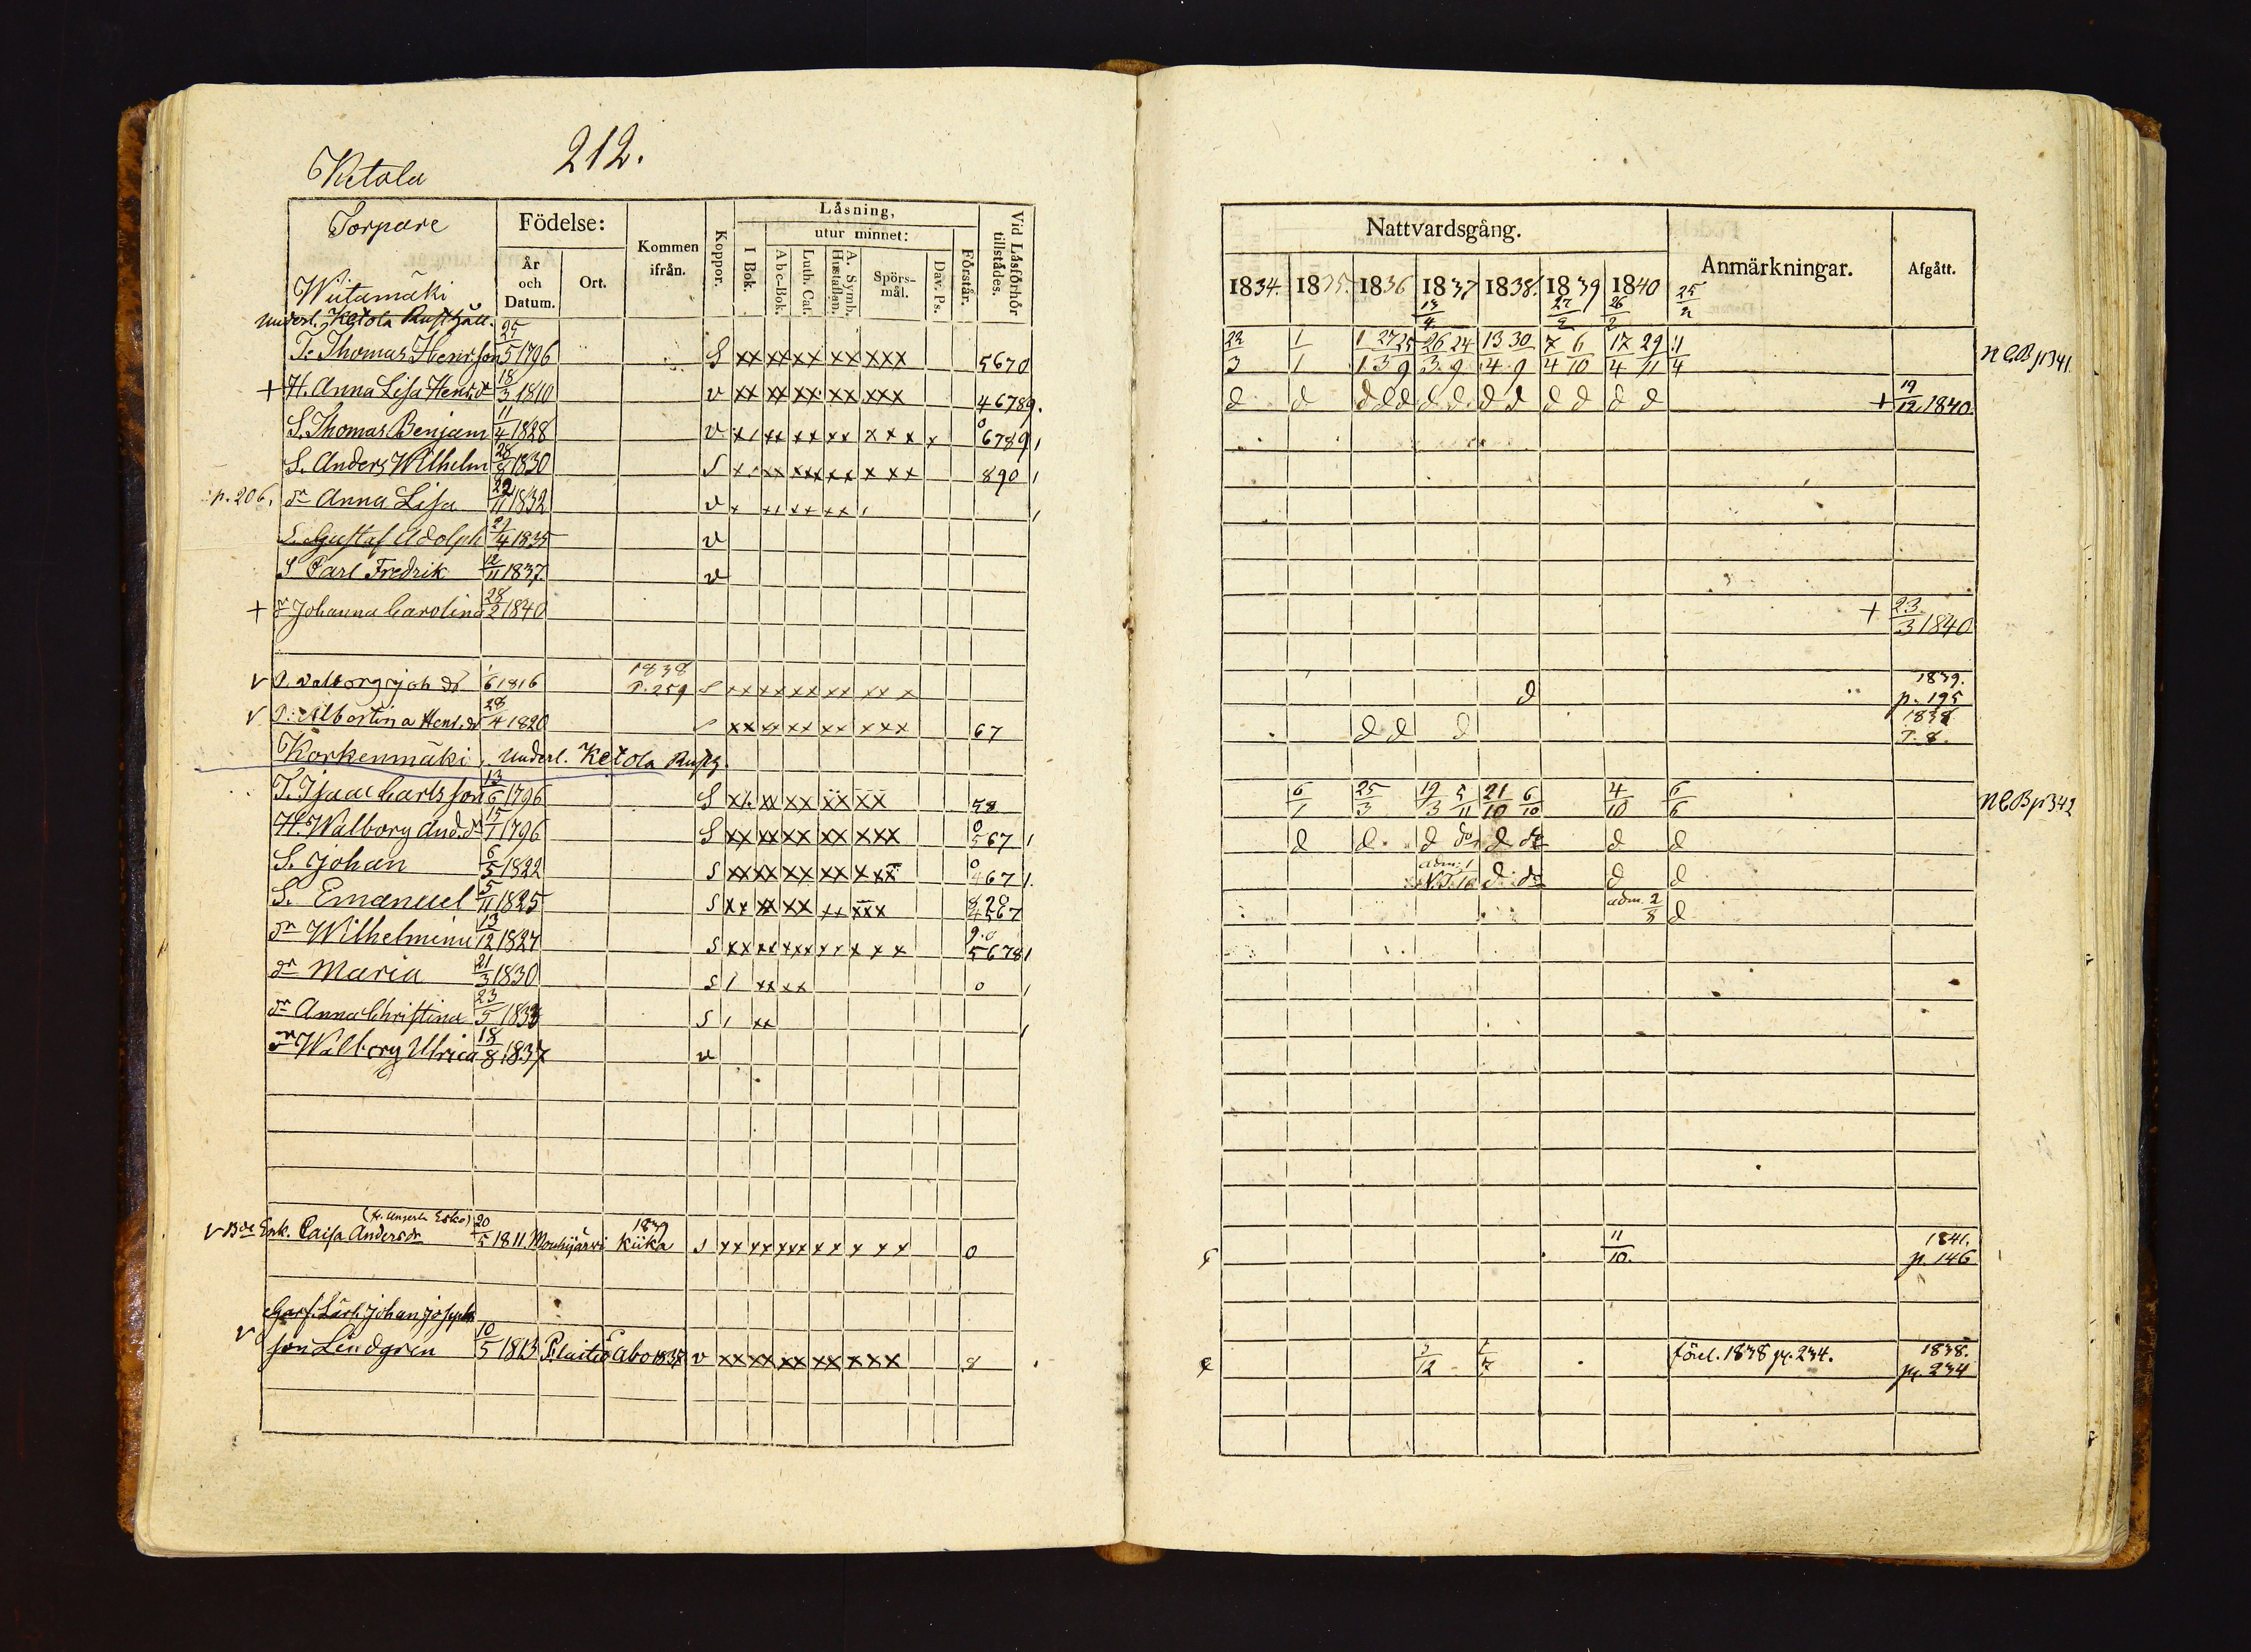 212.
Ketola
Torpare
Födelse:
År och Datum.
Ort.
Kommen ifrån.
Koppor.
Läsning,
I Bok.
utur minnet:
Abc-Bok.
Luth. Cat.
A. Symb. Hustaflan.
Spörs-mål.
Dav. Ps.
Förstår.
Vid Läsförhör tillstådes.
Nattvardsgång.
1834. 1835. 1836 1837 1838. 1839 1840
Anmärkningar.
Afgått.
13/4 27/2 26/2 25/2
Wiitamäki
underl. Ketola Rusthåll.
T. Thomas Henr.son 25/5 1796 S xx xx xx xx xxx 5670 22/3 1/1 NCB p 341.
+ H. Anna Lisa Henr.dr 18/3 1810 v xx xx xx xx xxx 46789. d d d d d d d d d d d d d + 19/12 1840
S. Thomas Benjam 11/4 1828 v 0 6789
S. Anders Wilhelm 28/8 1830 S 890
p. 206. dr Anna Lisa 22/11 1832 v
S. Gustaf Adolph 27/4 1835 v
S Carl Fredrik 12/11 1837 v
+ dr Johanna Carolina 28/2 1840 + 23/3 1840
v P. Walborg Joh dr 1/6 1816 1838 P. 259 S xx xx xx xx xx x d 1839. p. 195
v P. Albertina Henr.dr 28/4 1820 xx xx xx xx xxx 67 d d d 1838 P. 8.
Korkenmäki, underl. Ketola Rusth.
T. Isaac Carlsson 13/6 1796 S 58 6/1 25/3 19/3 5/11 21/10 6/10 4/10 6/6 NCB p 342
H. Walborg And.dr 15/1 1796 S xx xx xx xx xxx 0 567 d d d do d do d d
S. Johan 6/5 1822 S xx xx xx xx xxx 0 467 adm. 1 d do d d
S. Emanuel 5/11 1825 S xx xx xx xx xxx 890 4567 adm. 2/8 d
dr Wilhelmina 13/12 1827 S xx xx xxx xx x x x 9.0 5678
dr Maria 21/3 1830 S 1 xx xx 0
dr Anna Christina 23/5 1833 S 1 xx
dr Walborg Ulrica 18/8 1837 v
v Enk. Caisa Andersdr 20/5 1811 Mouhijärvi 1839 Kiika S xx xx xxx xx x xx 0 11/10. 1841. p. 146
Garf. Lärl. Johan Josephs
v son Lindgren 10/5 1813 Åbo 1837 v xx xx xx xx xxx 8 förel. 1838 pg. 234. 1838. pg. 234